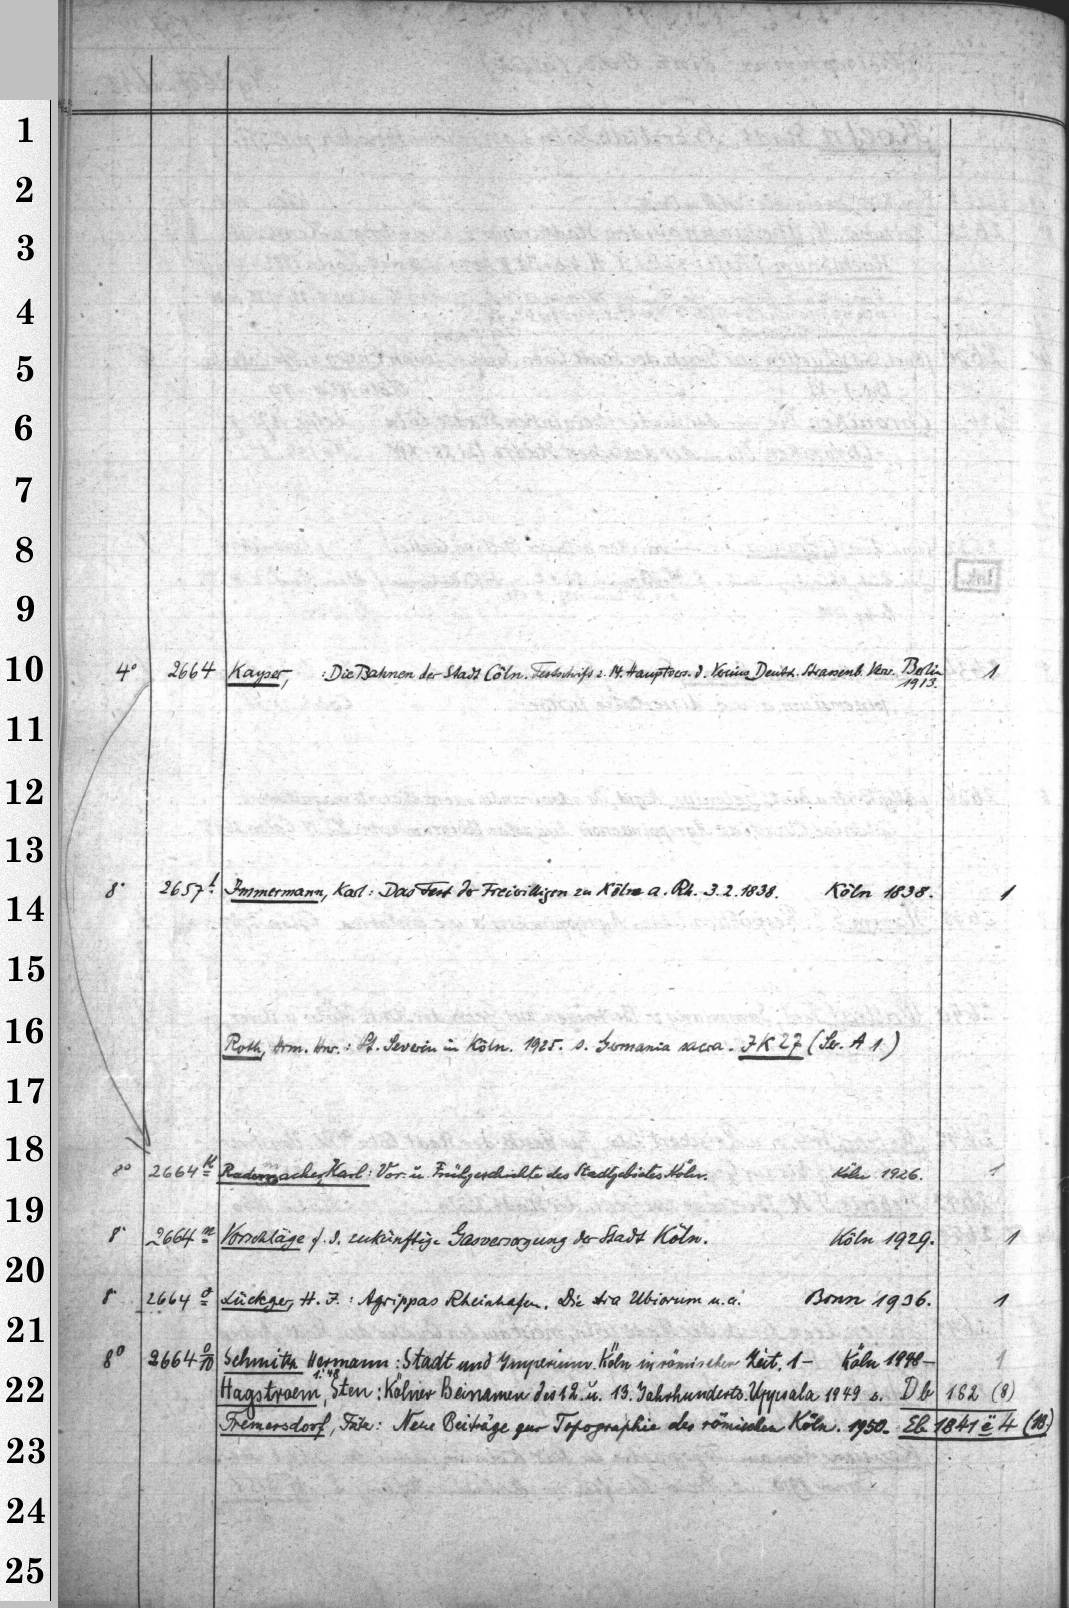 1
2
3
4
5
6
7
8
9
10
11
12
13
14
15
16
17
18
19
20
21
22
23
24
25
4° 2664 Kayser, : Die Bahnen der Stadt Cöln. Festschrift z. 14. Hauptvers. d. Vereins Deutsch. Strassenb. Verw. Berlin 1913. 1
8° 2657 l Immermann, Karl: Das Fest der Freiwilligen zu Köln a. Rh. 3.2.1838. Köln 1838. 1
Roth, Hrm. Hnr.: St. Severin in Köln. 1925. s. Germania sacra. JK 27 (Ser. A 1)
8° 2664 Rademacher, Karl: Vor- u. Frühgeschichte des Stadtgebietes Köln. Köln 1926. 1
8° 2664 Vorschläge f. d. zukünftige Gasversorgung der Stadt Köln. Köln 1929. 1
8° 2664 o Lückger, H. J.: Agrippas Rheinhafen. Die Ara Ubiorum u. a. Bonn 1936. 1
8° 2664 o/10 Schmitz, Hermann: Stadt und Imperium. Köln in römischer Zeit. 1– Köln 1948– 1
1: 48
Hagstroem, Sten: Kölner Beinamen des 12. u. 13. Jahrhunderts. Uppsala 1949 s. Db 182 (8)
Fremersdorf, Fritz: Neue Beiträge zur Topographie des römischen Köln. 1950. Eb 1841 ë 4 (18)